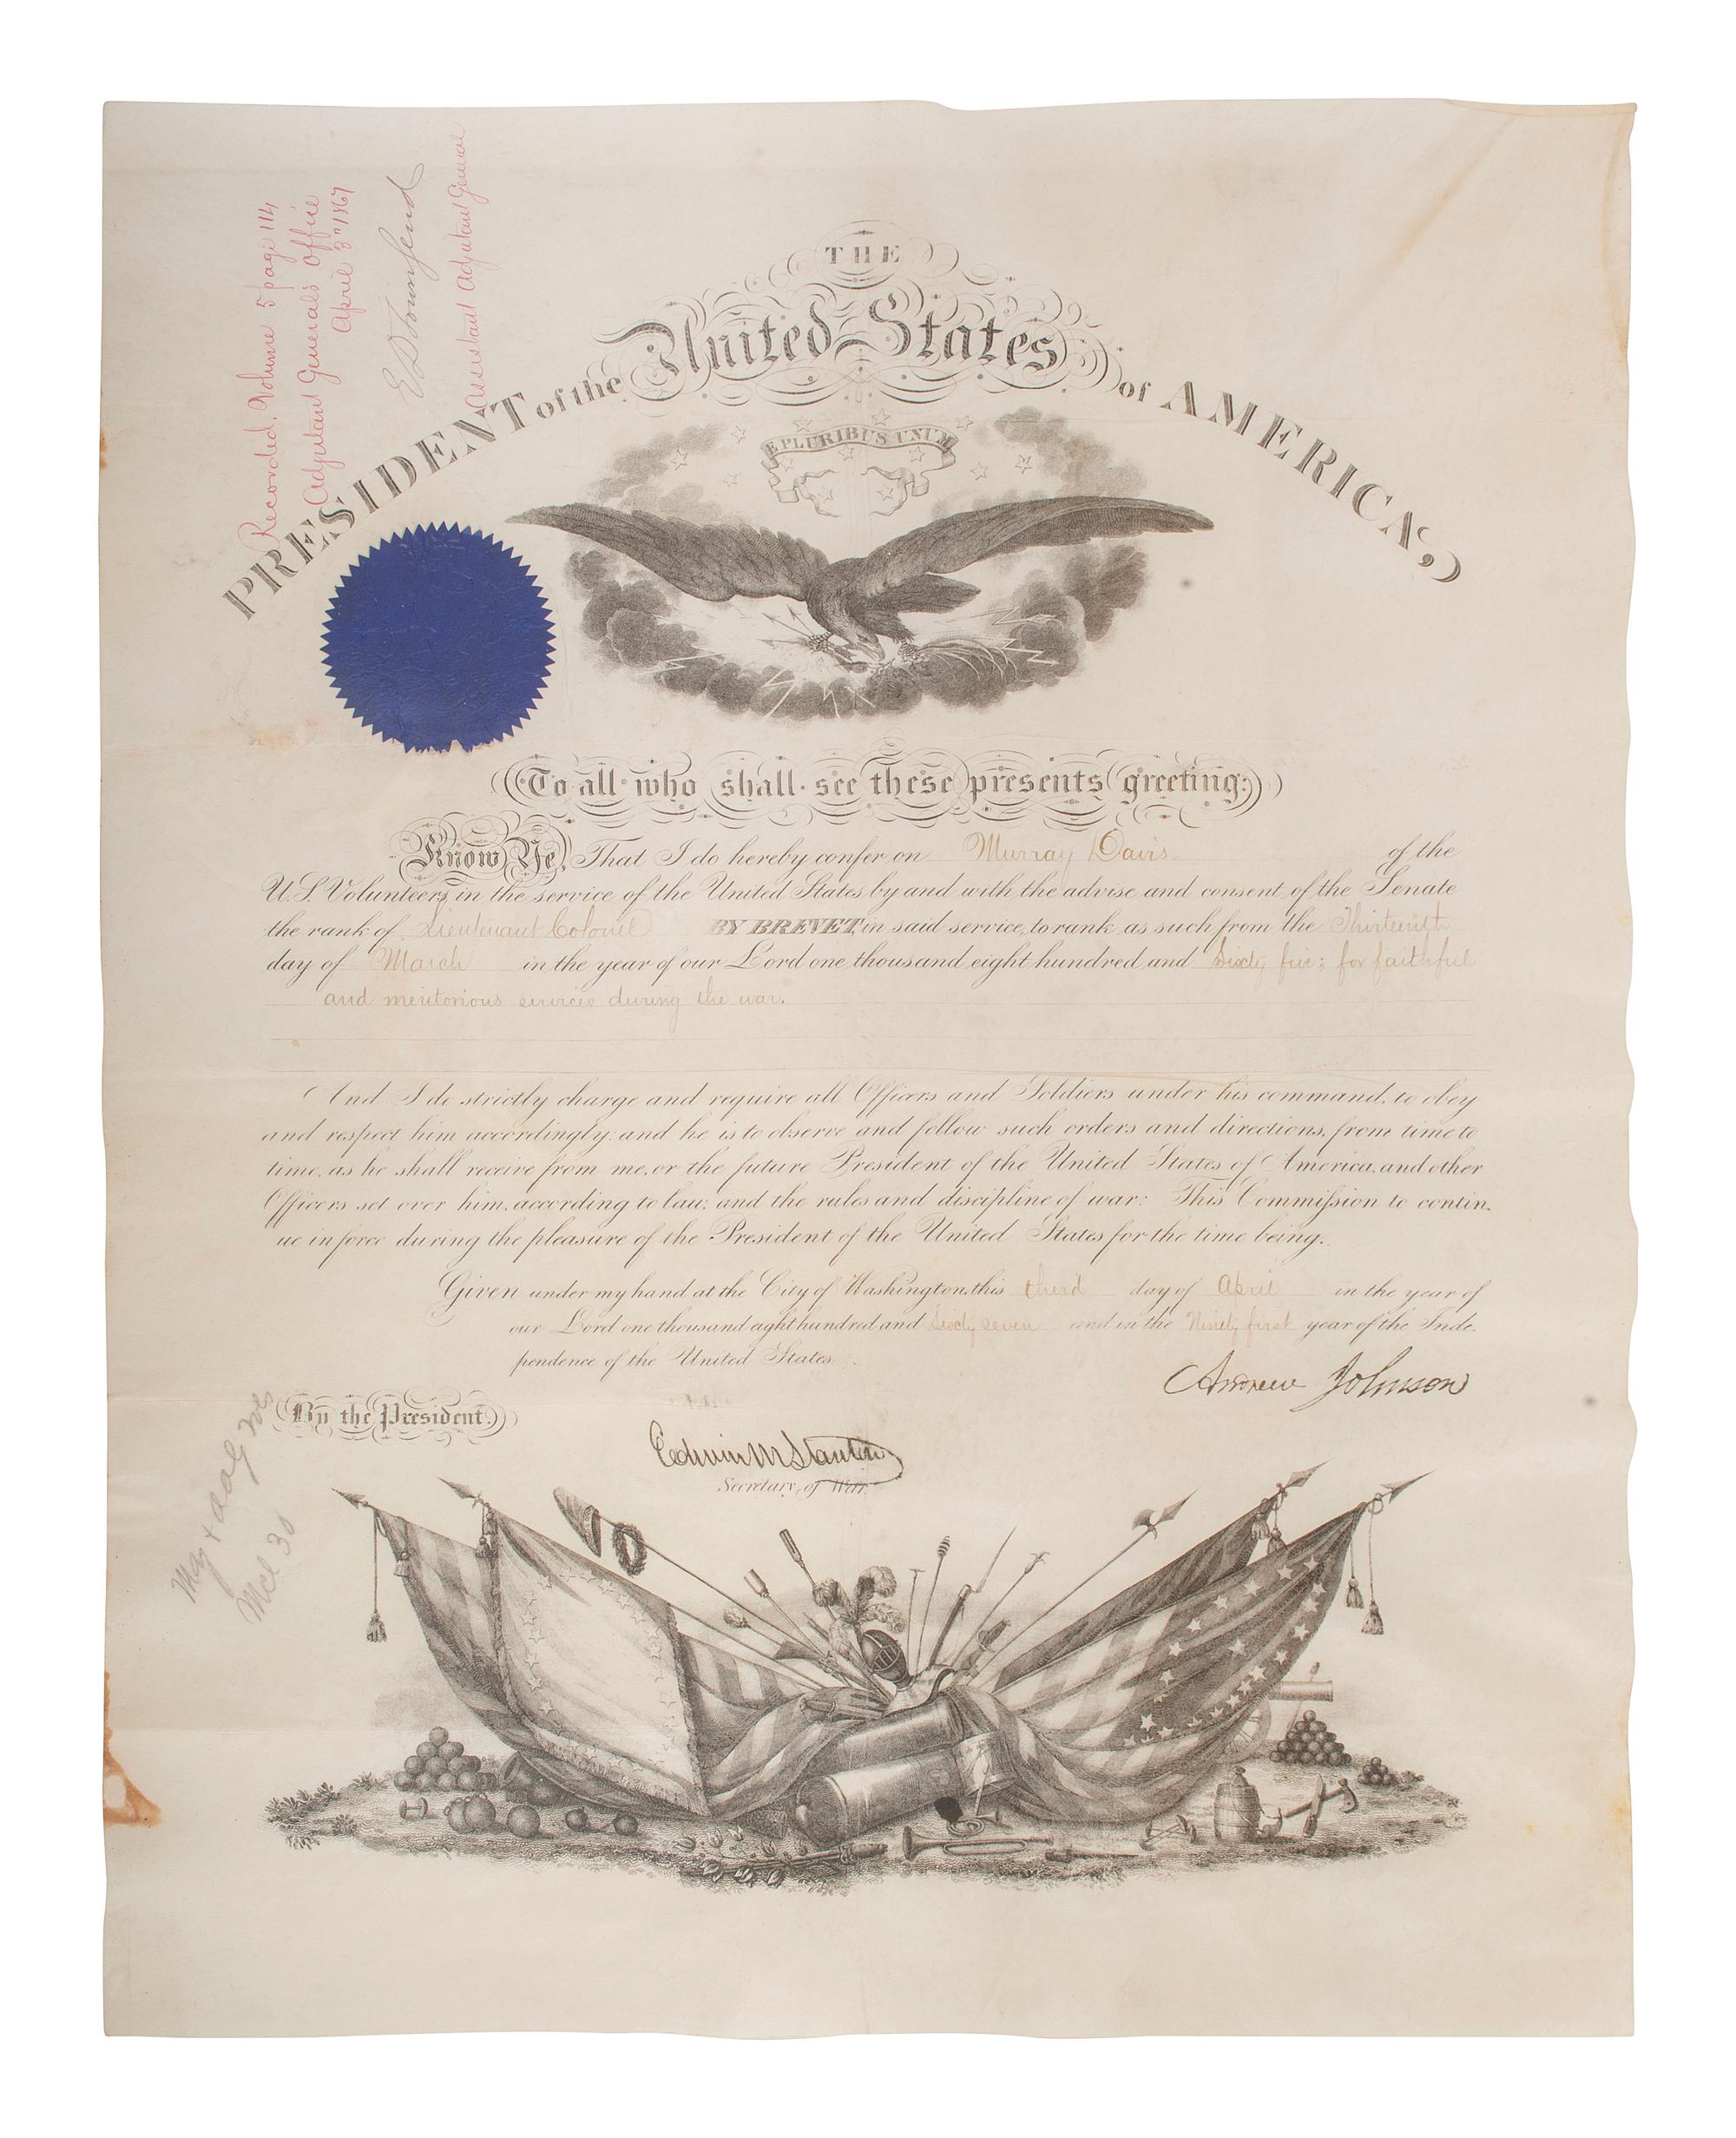 Recorded. Volume 5 page 114
Adjutant General's Office
April 3" 1867
E D Townsend
Assistant Adjutant General
THE
PRESIDENT of the United States of AMERICA,
E PLURIBUS UNUM
To all who shall see these presents greeting:
Know Ye, That I do hereby confer on Murray Davis of the
U.S. Volunteers, in the service of the United States by and with the advise and consent of the Senate
the rank of Lieutenant Colonel BY BREVET, in said service, to rank as such from the Thirteenth
day of March in the year of our Lord one thousand eight hundred and Sixty five; for faithful
and meritorious services during the war.
And I do strictly charge and require all Officers and Soldiers under his command, to obey
and respect him accordingly: and he is to observe and follow such orders and directions, from time to
time, as he shall receive from me, or the future President of the United States of America, and other
Officers set over him, according to law, and the rules and discipline of war: This Commission to contin.
ue in force during the pleasure of the President of the United States for the time being.
Given under my hand at the City of Washington, this third day of April in the year of
our Lord one thousand eight hundred and Sixty seven and in the Ninety first year of the Inde.
pendence of the United States.
Andrew Johnson
By the President.
Edwin M Stanton
Secretary of War.